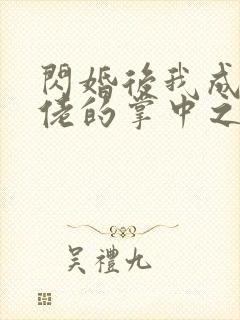 閃婚後我成
佬的掌中之
吴禮九